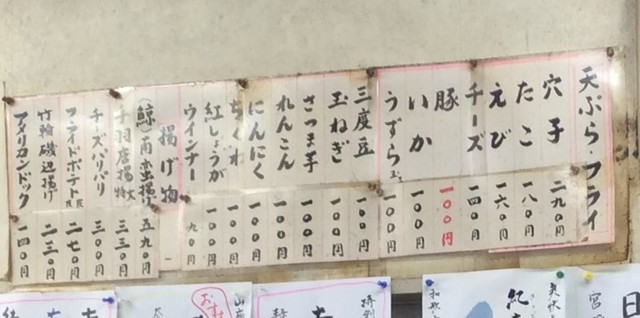 天ぷら・フライ
穴子 二九〇円
たこ 一八〇円
えび 一六〇円
チーズ 一四〇円
豚 一〇〇円
いか 一〇〇円
うずら 一〇〇円
三度豆 一〇〇円
玉ねぎ 一〇〇円
さつま芋 一〇〇円
れんこん 一〇〇円
にんにく 一〇〇円
ちくわ 一〇〇円
紅しょうが 一〇〇円
ウインナー 九〇円
揚げ物
(鯨) 揚げ 五九〇円
手羽唐揚 三三〇円
チーズパリパリ 三〇〇円
フライドポテト 二七〇円
竹輪磯辺揚げ 二三〇円
アメリカンドック 一四〇円